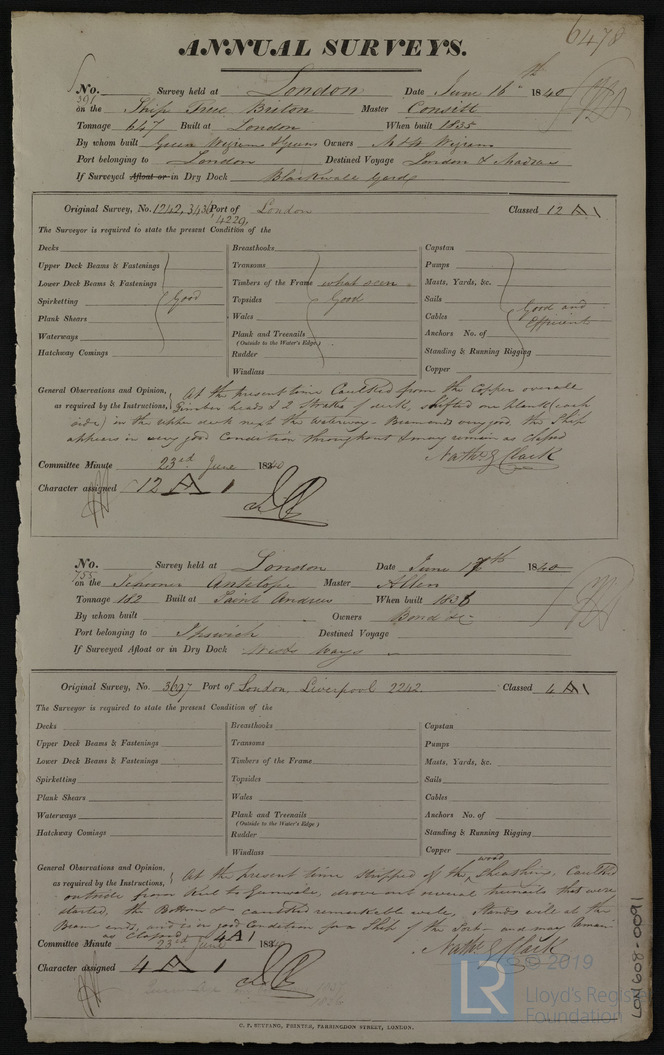 6478
ANNUAL SURVEYS.
No. 391 Survey held at London Date June 16th 1840
on the Ship Free Briton Master Consitt
Tonnage 647 Built at London When built 1835
By whom built Green Wigrams & Green Owners M & H Wigram
Port belonging to London Destined Voyage London & Madras
If Surveyed Afloat or in Dry Dock Blackwall Yard
Original Survey, No. 1242, 3436 4229, Port of London Classed 12 A 1
The Surveyor is required to state the present Condition of the
Decks Breasthooks Capstan
Upper Deck Beams & Fastenings Transoms Pumps
Lower Deck Beams & Fastenings Timbers of the Frame what seen Masts, Yards, &c.
Spirketting Good Topsides Good Sails
Plank Shears Wales Cables Good and
Waterways Plank and Treenails Anchors No. of Efficient
(Outside to the Water's Edge.)
Hatchway Comings Rudder Standing & Running Rigging
Windlass Copper
General Observations and Opinion, At the present time Caulked from the Copper overall
as required by the Instructions, Timber heads & 2 Strakes of deck, Shifted one plank (each
side) in the upper deck next the waterway - Beam ends very good the Ship
appears in very good Condition throughout & may remain as Classed
Nathl. G Clark
Committee Minute 23rd June 1840
Character assigned 12 A 1
No. 755 Survey held at London Date June 17th 1840
on the Schooner Antelope Master Allen
Tonnage 182 Built at Saint Andrews When built 1836
By whom built Owners Bond &c
Port belonging to Ipswich Destined Voyage
If Surveyed Afloat or in Dry Dock Webbs Ways
Original Survey, No. 3697 Port of London, Liverpool 2242 Classed 4 A 1
The Surveyor is required to state the present Condition of the
Decks Breasthooks Capstan
Upper Deck Beams & Fastenings Transoms Pumps
Lower Deck Beams & Fastenings Timbers of the Frame Masts, Yards, &c.
Spirketting Topsides Sails
Plank Shears Wales Cables
Waterways Plank and Treenails Anchors No. of
(Outside to the Water's Edge.)
Hatchway Comings Rudder Standing & Running Rigging
Windlass Copper
General Observations and Opinion, At the present time stripped of the wood Sheathing, Caulked
as required by the Instructions, outside from Keel to Gunwale, drove out several treenails that were
started, the Bottom & caulked remarkable well, Stands well at the
Beam ends, and is in good Condition for a Ship of the Sort and may remain
as Classed 4 A 1
Nathl. G Clark
Committee Minute 23rd June 1840
Character assigned 4 A 1
C. F. SEYFANG, PRINTER, FARRINGDON STREET, LONDON.
LON608-0091
LR © 2019
Lloyd's Register
Foundation